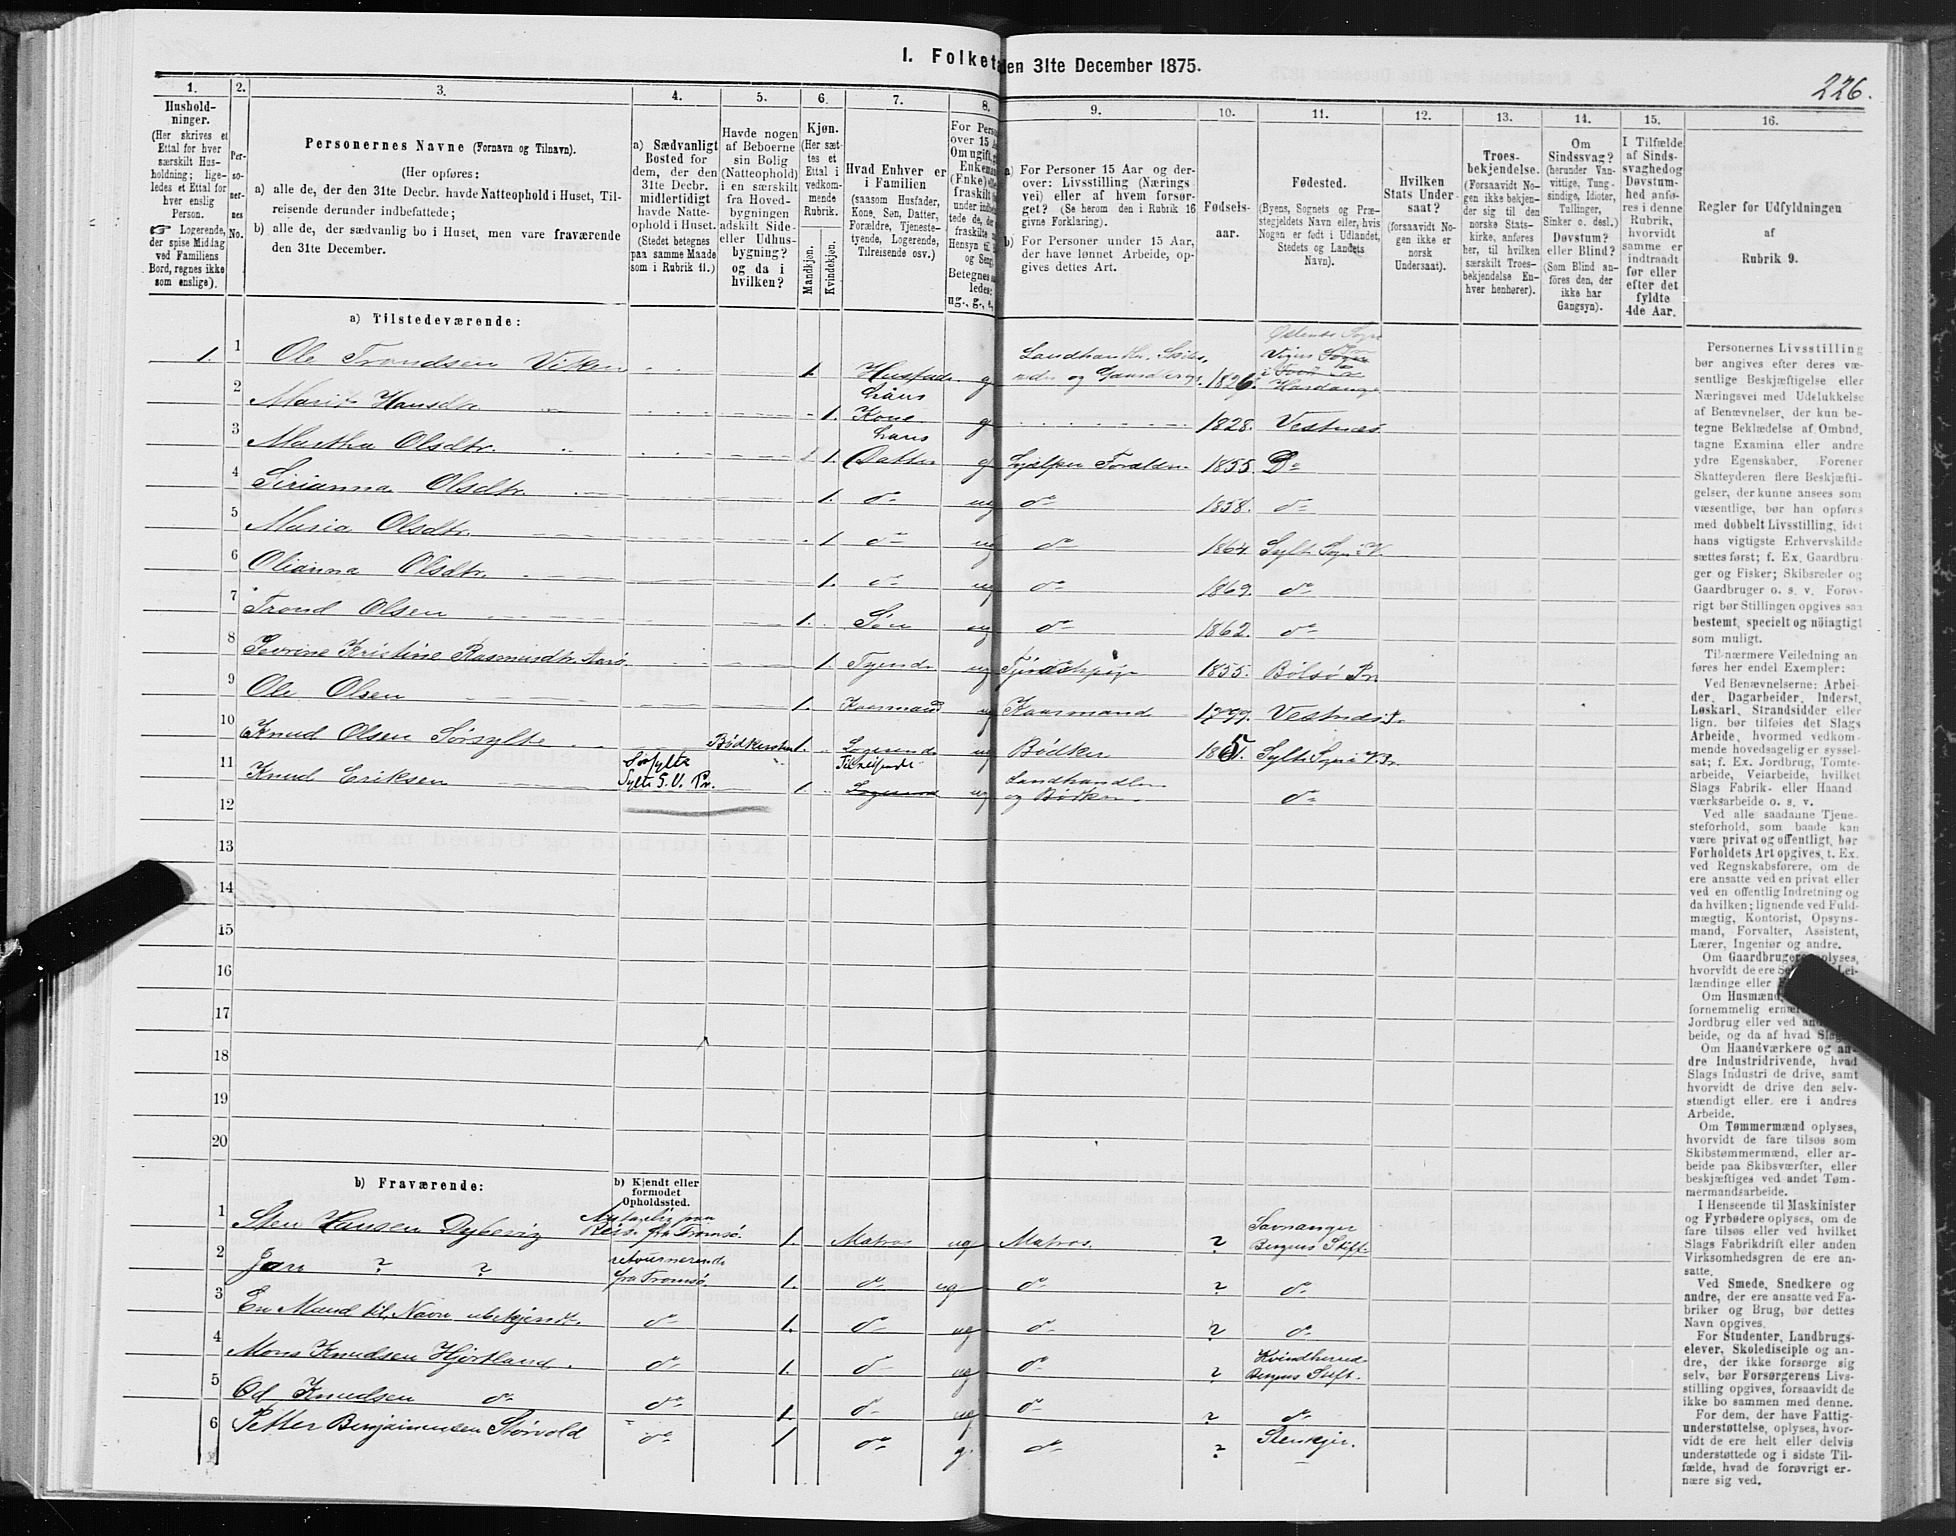 I. Folket
en 31te December 1875.
226.
1.
2.
3.
4.
5.
6.
7.
8.
9.
10.
11.
12.
13.
14.
15.
16.
Hushold-
ninger.
(Her skrives et
Ettal for hver
særskilt Hus-
holdning; lige-
ledes et Ettal for
hver enslig
Person.
☞ Logerende,
der spise Middag
ved Familiens
Bord, regnes ikke
som enslige).
Per-
so-
ner-
nes
No.
Personernes Navne (Fornavn og Tilnavn).
(Her opføres:
a) alle de, der den 31te Decbr. havde Natteophold i Huset, Til-
reisende derunder indbefattede;
b) alle de, der sædvanlig bo i Huset, men vare fraværende
den 31te December.
a) Sædvanligt
Bosted for
dem, der den
31te Decbr.
midlertidigt
havde Natte-
ophold i Huset.
(Stedet betegnes
paa samme Maade
som i Rubrik 11.)
Havde nogen
af Beboerne
sin Bolig
(Natteophold)
i en særskilt
fra Hoved-
bygningen
adskilt Side-
eller Udhus-
bygning?
og da i
hvilken?
Kjøn.
(Her sæt-
tes et
Ettal i
vedkom-
mende
Rubrik.
Mandkjøn.
Kvindekjøn.
Hvad Enhver er
i Familien
(saasom Husfader,
Kone, Søn, Datter,
Forældre, Tjeneste-
tyende, Logerende,
Tilreisende osv.)
For Perso
over 15 A
Om ugift, g
Enkeman
(Enke) elle
fraskilt
under indbe
tede de, de
fraskilte
Hensyn til
og Seng
Betegnes s
ledes:
ug., g., e.,
a) For Personer 15 Aar og der-
over: Livsstilling (Nærings
vei) eller af hvem forsør-
get? (Se herom den i Rubrik 16
givne Forklaring).
b) For Personer under 15 Aar,
der have lønnet Arbeide, op-
gives dettes Art.
Fødsels-
aar.
Fødested.
(Byens, Sognets og Præ-
stegjeldets Navn eller, hvis
Nogen er født i Udlandet,
Stedets og Landets
Navn).
Hvilken
Stats Under-
saat?
(forsaavidt No-
gen ikke er
norsk
Undersaat).
Troes-
bekjendelse.
(Forsaavidt No-
gen ikke bekjen-
der sig til den
norske Stats-
kirke, anføres
her, til hvilken
særskilt Troes-
bekjendelse En-
hver henhører).
Om
Sindssvag?
(herunder Van-
vittige, Tung-
sindige, Idioter,
Tullinger,
Sinker o. desl.)
Døvstum?
eller Blind?
(Som Blind an-
føres den, der
ikke har
Gangsyn).
I Tilfælde
af Sinds-
svaghed og
Døvstum-
hed anfø-
res i denne
Rubrik,
hvorvidt
samme er
indtraadt
før eller
efter det
fyldte
4de Aar.
Regler for Udfyldningen
af
Rubrik 9.
a) Tilstedeværende:
1. 1 Ole Trondsen Viken 1. Husfader g Landhandler, Skibs- 1826.
Vigør
Hardanger
2 Marit Hansdtr 1. hans Kone g 1828. Vestnæs
3 Martha Olsdtr. 1. hans Datter g hjælper Forældre 1855. Do
4 Sirianna Olsdtr. 1. do ug do 1858. do
5 Maria Olsdtr. 1 do ug do 1864. Sylte Sogn V
6 Olianna Olsdtr. 1. do ug do 1869. do
7 Trond Olsen 1. Søn ug do 1862. do
8 Sevrine Kristine Rasmusdtr. Aarø 1. Tyende ug 1855. Bolsø Pr
9 Ole Olsen 1. Kaarmand ug Kaarmand 1799. Vestnæs Pr.
10 Knud Olsen Sørsylte 1. Logerende ug Bødker 1851. Sylte Sogn V. Pr.
11 Knud Eriksen Sørsylte Sylte S. V. Pr. 1. Tilreisende Logerende ug Landhandler og Bødker do
12
13
14
15
16
17
18
19
20
b) Fraværende:
b) Kjendt eller
formodet
Opholdssted.
1 Sten Hansen Dybevig Reise fra Tromsø. 1. Matros ug Matros. ? Bergens Stift.
2 Jan ? ? retournerende fra Tromsø. 1. do ug do ? do
3 En Mand til Navn ubekjendt. do 1. do ug do ? do
4 Mons Knudsen Hjortland. do 1. do ug do ? Kvindherred Bergens Stift.
5 Od Knudsen do do 1. do ug do ? do
6 Petter Benjaminsen Storvold do 1 do g. do ? Stenkjer.
Personernes Livsstilling
bør angives efter deres væ-
sentlige Beskjæftigelse eller
Næringsvei med Udelukkelse
af Benævnelser, der kun be-
tegne Beklædelse af Ombud,
tagne Examina eller andre
ydre Egenskaber. Forener
Skatteyderen flere Beskjæfti-
gelser, der kunne ansees som
væsentlige, bør han opføres
med dobbelt Livsstilling, idet
hans vigtigste Erhvervskilde
sættes først; f. Ex. Gaardbru-
ger og Fisker; Skibsreder og
Gaardbruger o. s. v. Forøv-
rigt bør Stillingen opgives saa
bestemt, specielt og nöiagtigt
som muligt.
Til nærmere Veiledning an-
føres her endel Exempler:
Ved Benævnelserne: Arbei-
der, Dagarbeider, Inderst,
Løskarl, Strandsidder eller
lign. bør tilføies det Slags
Arbeide, hvormed vedkom-
mende hovedsagelig er syssel-
sat; f. Ex. Jordbrug, Tomte-
arbeide, Veiarbeide, hvilket
Slags Fabrik- eller Haand
værksarbeide o. s. v.
Ved alle saadanne Tjene-
steforhold, som baade kan
være privat og offentligt, bør
Forholdets Art opgives, t. Ex.
ved Regnskabsførere, om de
ere ansatte ved en privat eller
ved en offentlig Indretning og
da hvilken; lignende ved Fuld-
mægtig, Kontorist, Opsyns-
mand, Forvalter, Assistent,
Lærer, Ingeniør og andre.
Om Gaardbrugere oplyses,
hvorvidt de ere Se Lei-
lændinge eller
Om Husmænd
fornemmelig ernæ
Jordbrug eller ved an
beide, og da af hvad Slags
Om Haandværkere og an-
dre Industridrivende, hvad
Slags Industri de drive, samt
hvorvidt de drive den selv-
stændigt eller ere i andres
Arbeide.
Om Tømmermænd oplyses,
hvorvidt de fare tilsøs som
Skibstømmermænd, eller ar-
beide paa Skibsværfter, eller
beskjæftiges ved andet Tøm-
mermandsarbeide.
I Henseende til Maskinister
og Fyrbødere oplyses, om de
fare tilsøs eller ved hvilket
Slags Fabrikdrift eller anden
Virksomhedsgren de ere an-
satte.
Ved Smede, Snedkere og
andre, der ere ansatte ved Fa-
briker og Brug, bør dettes
Navn opgives.
For Studenter, Landbrugs-
elever, Skoledisciple og an-
dre, der ikke forsørge sig
selv, bør Forsørgerens Livs-
stilling opgives, forsaavidt de
ikke bo sammen med denne.
For dem, der have Fattig-
understøttelse, oplyses, hvor-
vidt de ere helt eller delvis
understøttede og i sidste Til-
fælde, hvad de forøvrigt er-
nære sig ved.